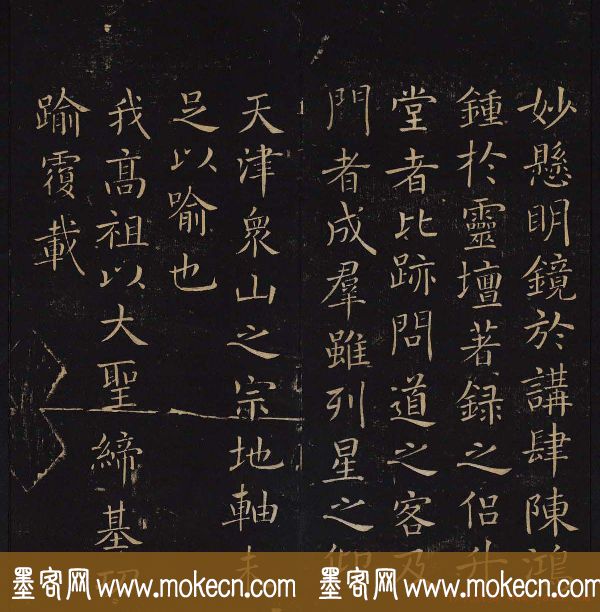 妙懸明鏡於講肆陳鴻
鍾於靈壇著録之侶升
堂者比跡問道之客及
門者成羣雖列星之仰
天津衆山之宗地軸未
足以喻也
我髙祖以大聖締基
踰覆載
墨客网 www.mokecn.com 墨客网 www.mokecn.com